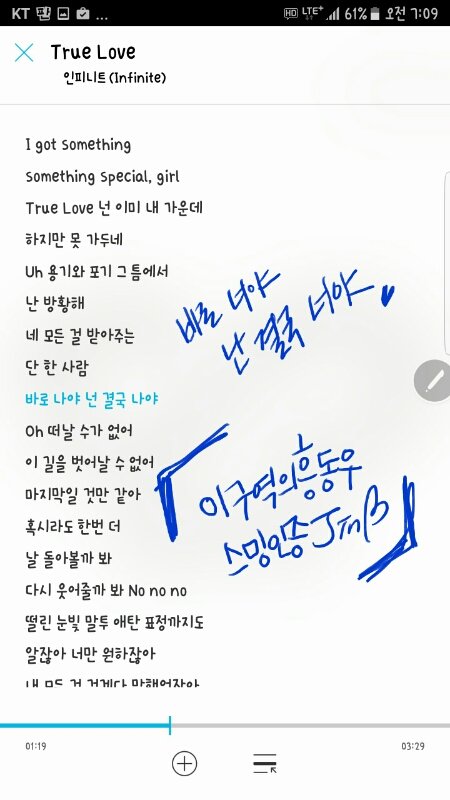 KT ... HD LTE+ 61% 오전 7:09
True Love
인피니트(Infinite)
I got something
something special, girl
True Love 넌 이미 내 가운데
하지만 못 가두네
Uh 용기와 포기 그 틈에서
난 방황해
네 모든 걸 받아주는
단 한 사람
바로 나야 넌 결국 나야
Oh 떠날 수가 없어
이 길을 벗어날 수 없어
마지막일 것만 같아
혹시라도 한번 더
날 돌아볼까 봐
다시 웃어줄까 봐 No no no
떨린 눈빛 말투 애탄 표정까지도
알잖아 너만 원하잖아
바로 너야
난 결국 너야
「이구역의흥동우
스밍인증」
01:19
03:29